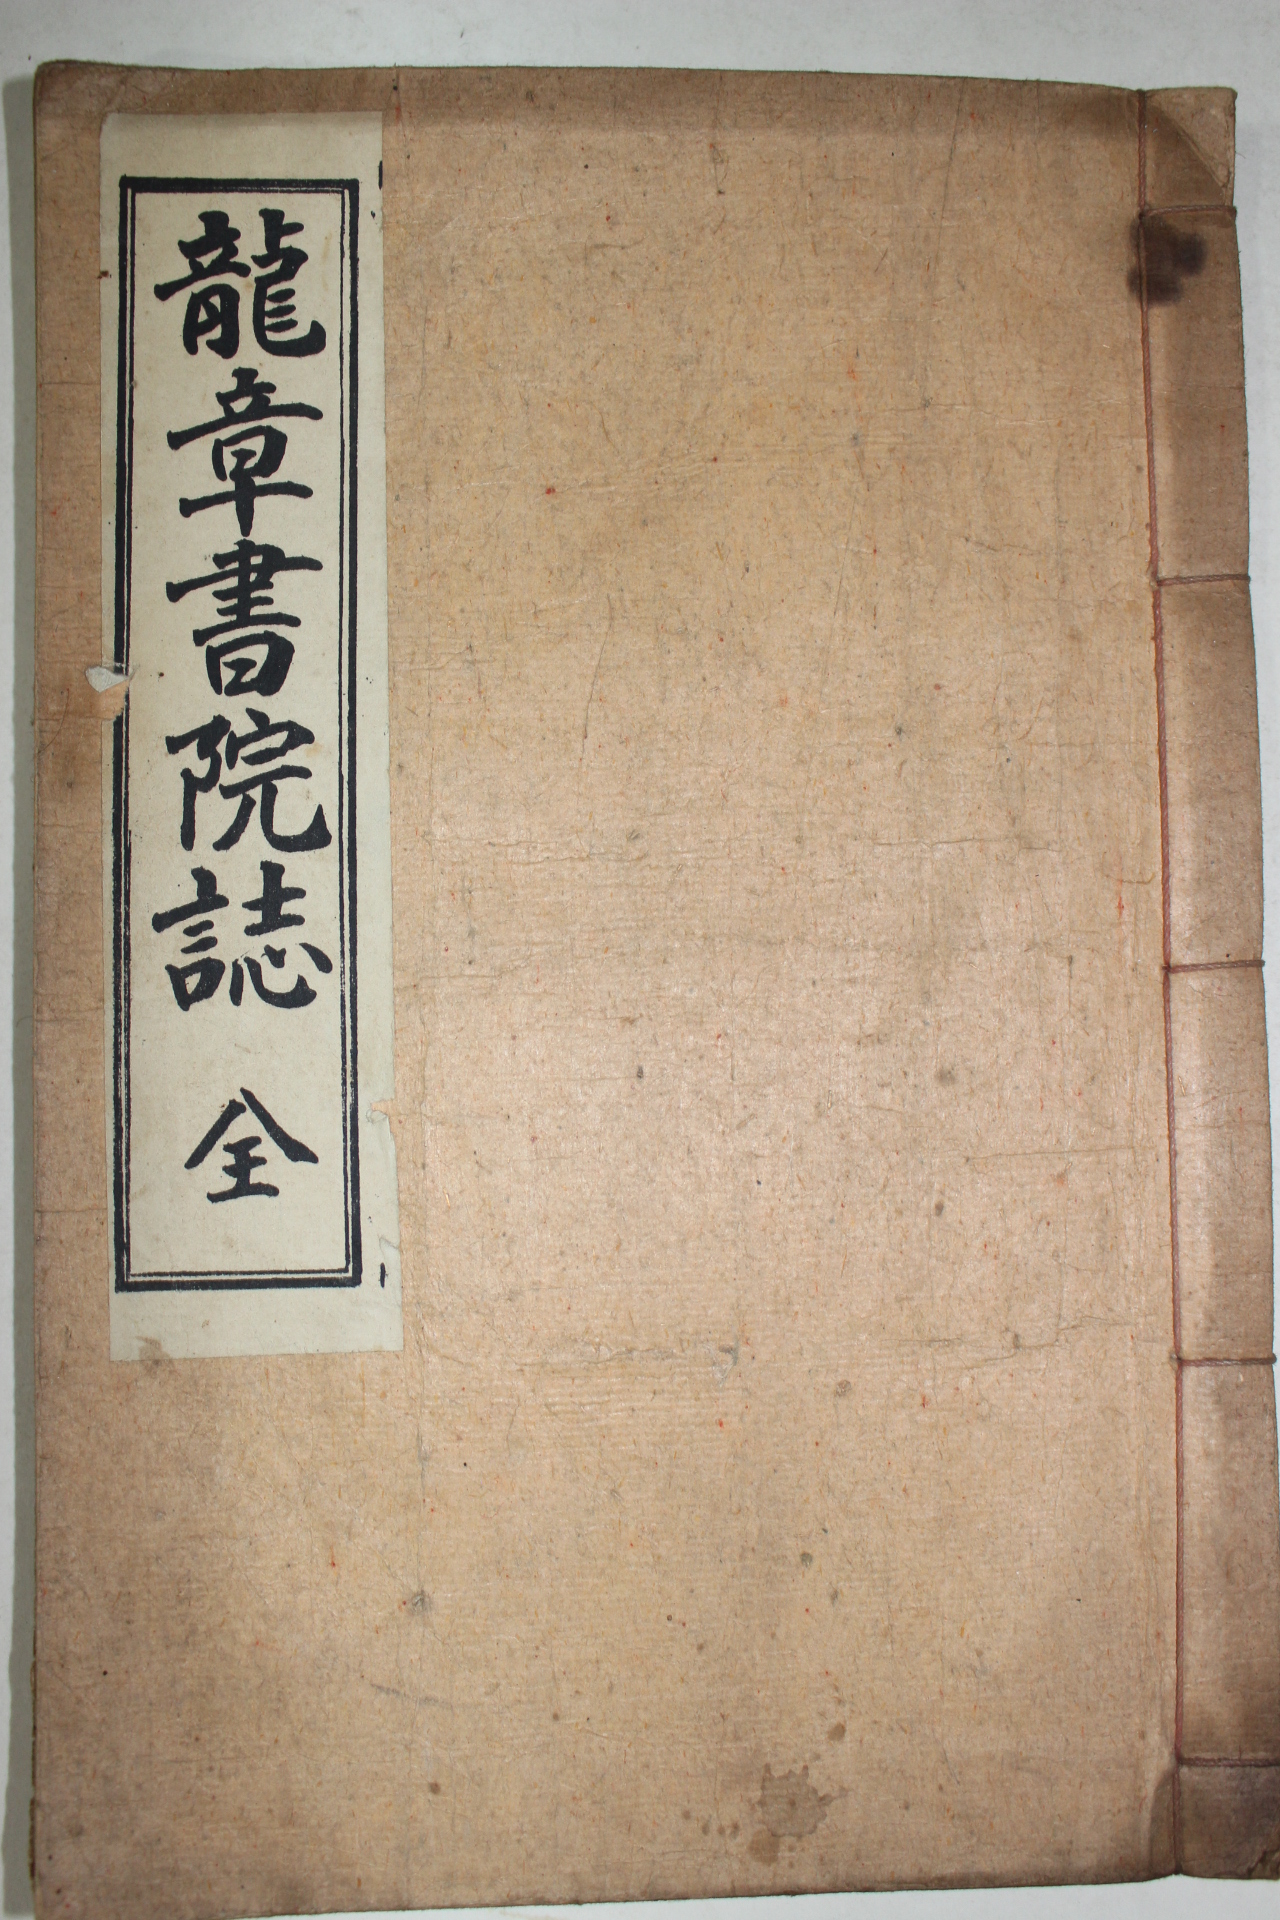 龍章書院誌 全